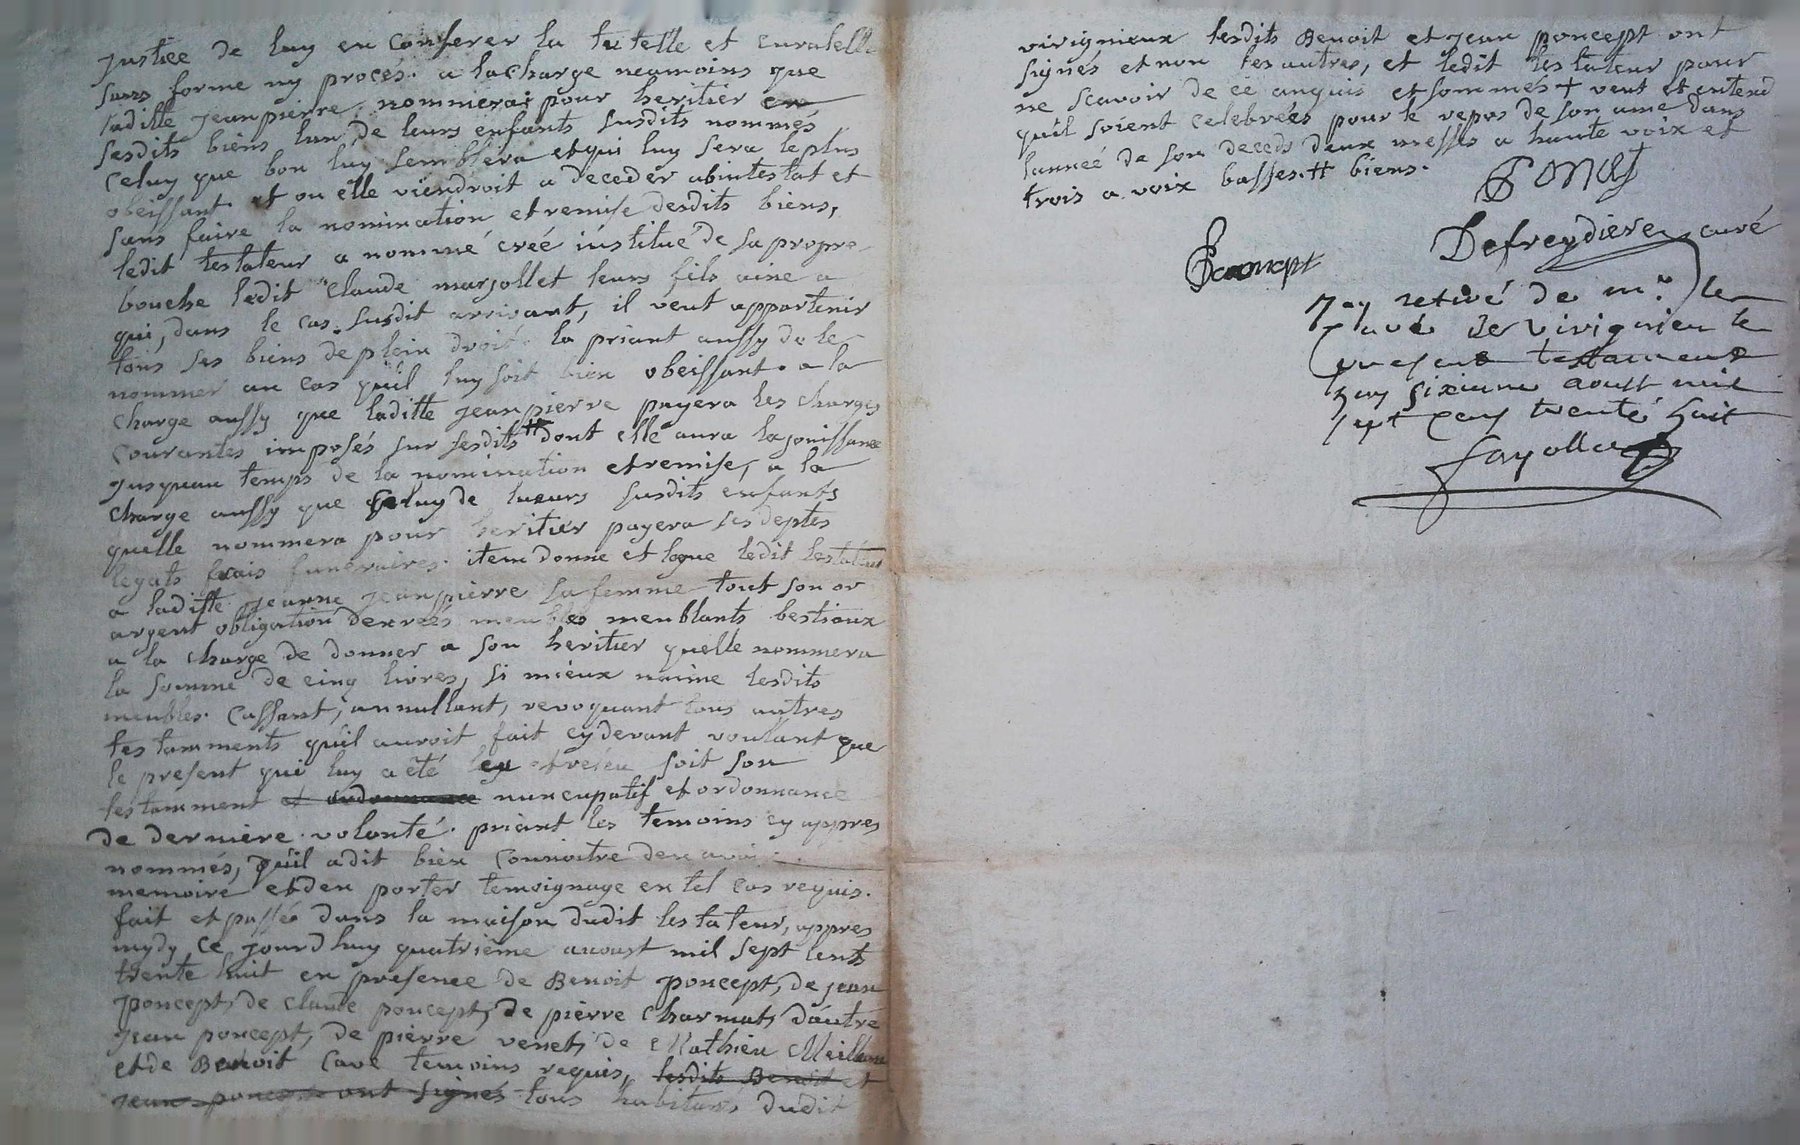 justice de luy en conferer la tutelle et curatelle
sans forme ny procés. a lacharge neamoins que
laditte jeanpierre nommerai pour heritier en
sesdits biens lun de leurs enfants susdits nommés
celuy que bon luy semblera et qui luy sera le plus
obeissant. et ou elle viendroit a deceder abintestat et
sans faire la nomination et remise desdits biens,
ledit testateur a nommé creé institué de sa propre
bouche ledit claude marjollet leurs fils ainé a
qui, dans le cas susdit arrivant, il veut appartenir
tous ses biens de plein droit. la priant aussy de le
nommer au cas quil luy soit bien obeissant. a la
charge aussy que laditte jeanpierre payera les charges
courantes imposés sur sesdits # dont elle aura la jouissance
jusquau temps de la nomination et remise, a la
charge aussy que celuy de lueurs susdits enfants
quelle nommera pour heritier payera ses deptes
legats frais funeraires. item donne et legue ledit testateur
a laditte jeanne jeanpierre sa femme tout son or
argent obligation denreés meubles meublants bestiaux
a la charge de donner a son heritier quelle nommera
la somme de cinq livres, si mieux naime lesdits
meubles. cassant, annullant, revoquant tous autres
testamments quil auroit fait cydevant voulant que
le present qui luy a été leu et releu soit son
testamment et ordonnance nuncupatif et ordonnance
de derniere volonté. priant les temoins cy appres
nommés, quil adit bien connoitre den avoir
memoire et den porter temoignage en tel cas requis.
fait et passée dans la maison dudit testateur, appres
mydy ce jourdhuy quatrième auoust mil sept cents
trente huit en presence de Benoit poncept, de jean
poncept, de claude poncept, de pierre charmat, dautre
jean poncept, de pierre venet, de Mathieu
et de Benoit Cave temoins requis, lesdits Benoit et
jean poncept ont signés tous habitans dudit
virignieux lesdits Benoit et jean poncept ont
signés et non les autres, et ledit testateur pour
ne scavoir de ce anquis et sommés + veut et entend
quil soient celebreés pour le repos de son ame dans
lanneé de son deceds deux messes a haute voix et
trois a voix basses. # biens.
Defreydiere curé
poncept
Jay retiré de mr. le
Curé de virignieu le
present testament
huy sixieme aoust mil
sept cens trente huit
fayolle